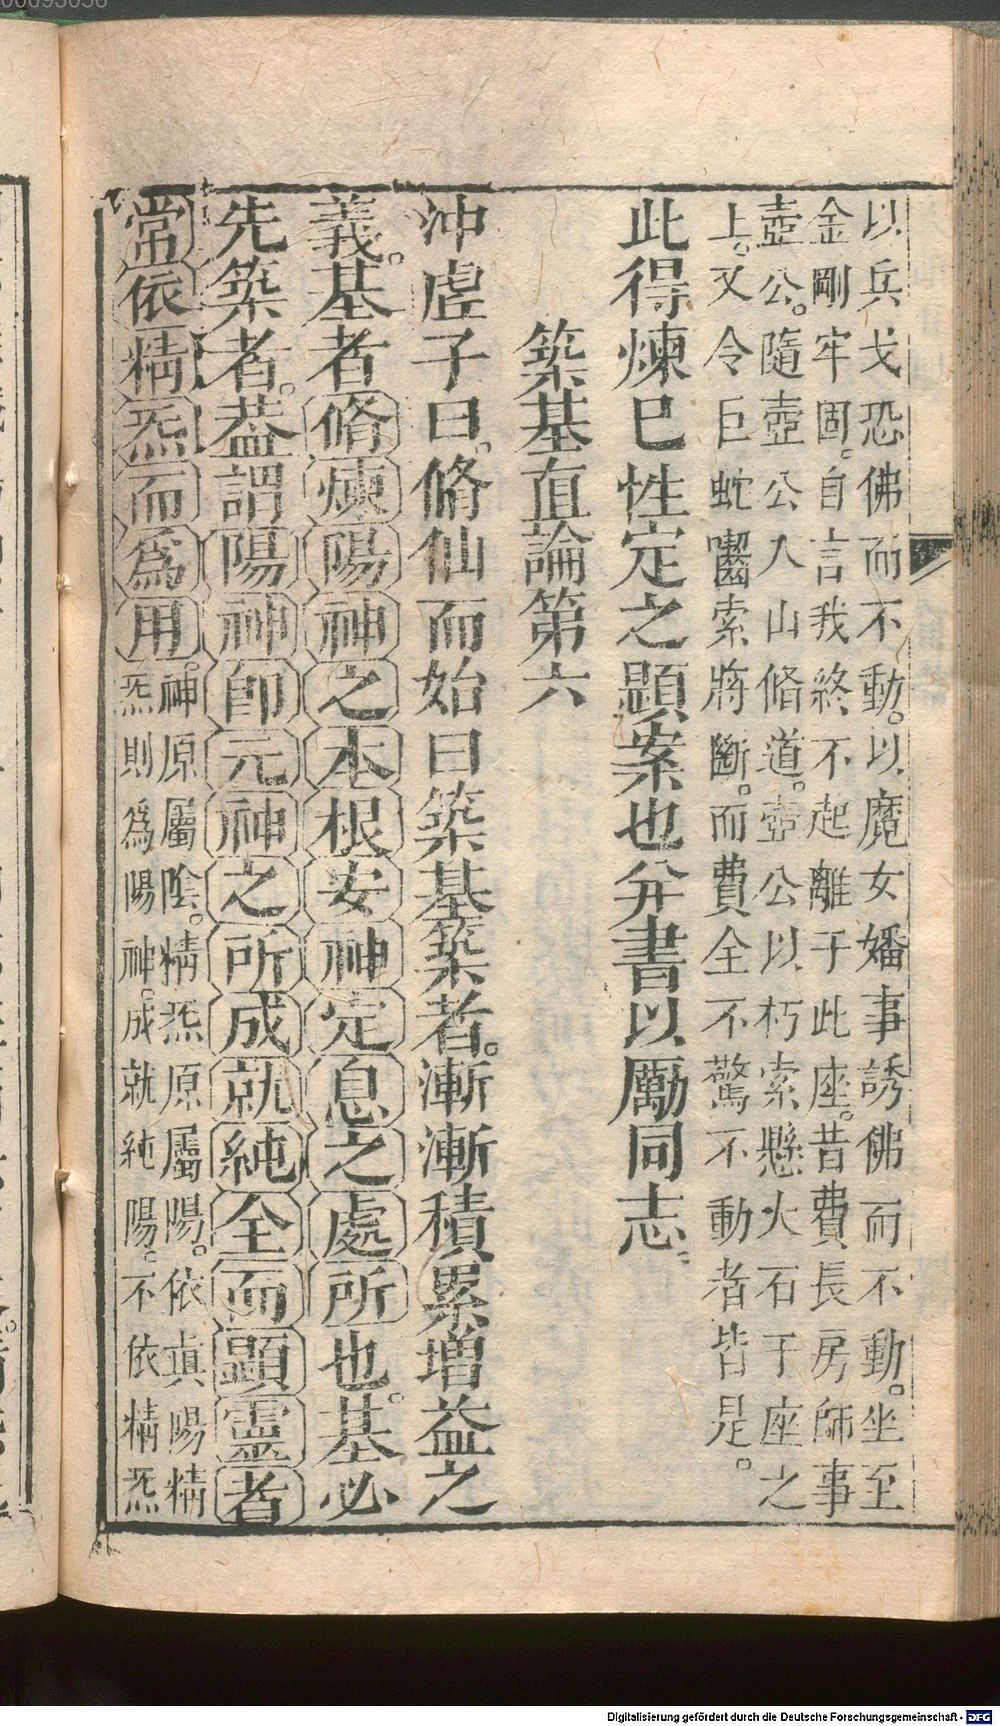 以兵戈恐佛而不動。以魔女嬏事誘佛而不動。坐至
金剛牢固。自言我終不起離于此座。昔費長房師事
壺公。隨壺公入山脩道。壺公以朽索懸大石于座之
上。又令巨蛇嚙索將斷。而費全不驚不動者皆是。
此得煉已性定之顯案也弁書以勵同志
築基直論第六
沖虛子曰。脩仙而始曰築基築者。漸漸積累增益之
義。基者脩煉陽神之本根安神定息之處所也。基必
先築者。葢謂陽神卽元神之所成就純全而顯靈者
常依精炁而爲用。神原屬陰。精炁原屬陽。依真陽精
炁則爲陽神。成就純陽。不依精炁
00093058
Digitalisierung gefördert durch die Deutsche Forschungsgemeinschaft - DFG